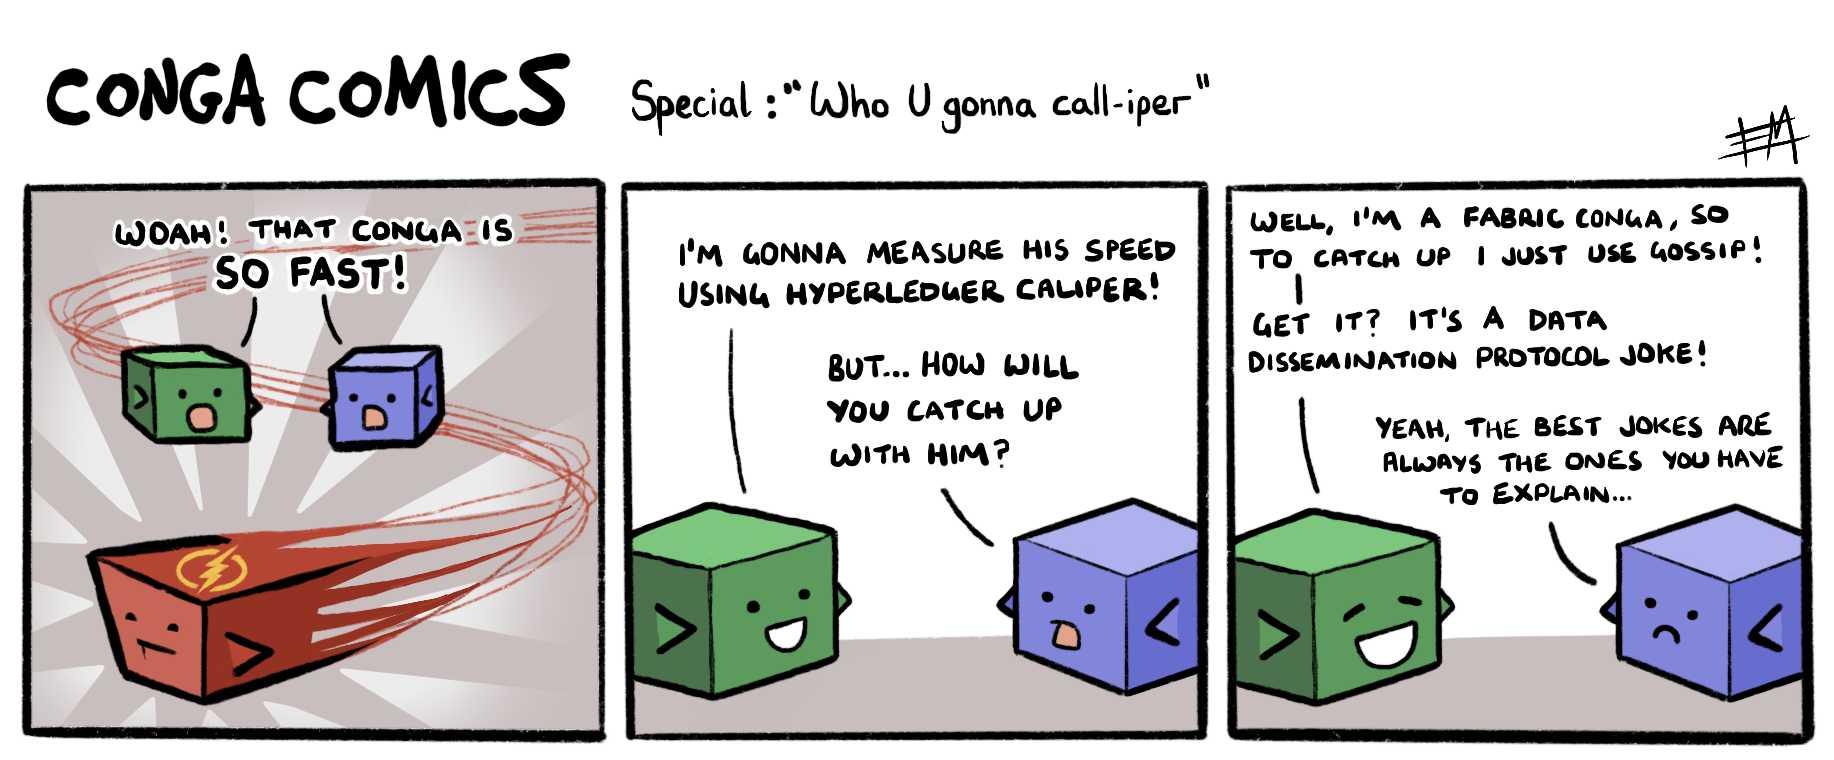 CONGA COMICS
Special : "Who U gonna call-iper"
EM
WOAH! THAT CONGA IS
SO FAST!
I'M GONNA MEASURE HIS SPEED
USING HYPERLEDGER CALIPER!
BUT... HOW WILL
YOU CATCH UP
WITH HIM?
WELL, I'M A FABRIC CONGA, SO
TO CATCH UP I JUST USE GOSSIP!
GET IT? IT'S A DATA
DISSEMINATION PROTOCOL JOKE!
YEAH, THE BEST JOKES ARE
ALWAYS THE ONES YOU HAVE
TO EXPLAIN...